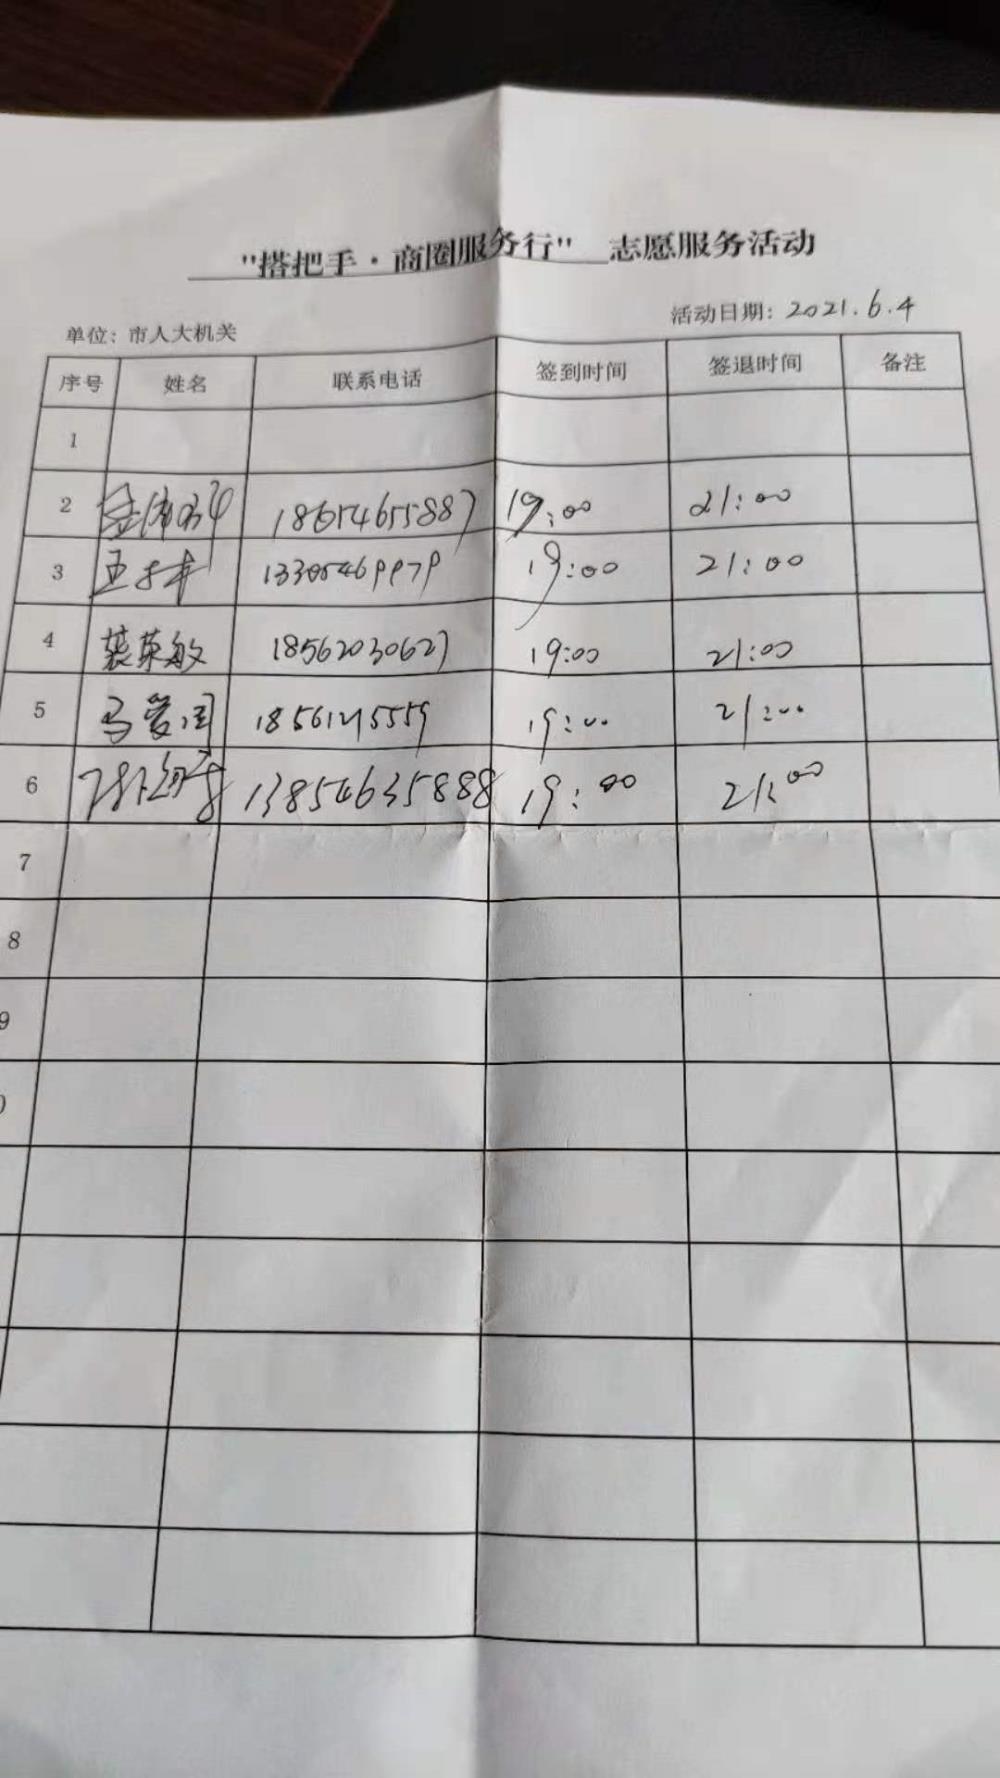 "搭把手·商圈服务行" 志愿服务活动
单位：市人大机关 活动日期：2021.6.4
序号 姓名 联系电话 签到时间 签退时间 备注
1
2 18654655887 19:00 21:00
3 13305469979 19:00 21:00
4 裴英敏 18562030627 19:00 21:00
5 马爱国 18561215559 19:00 21:00
6 13854635888 19:00 21:00
7
8
9
0